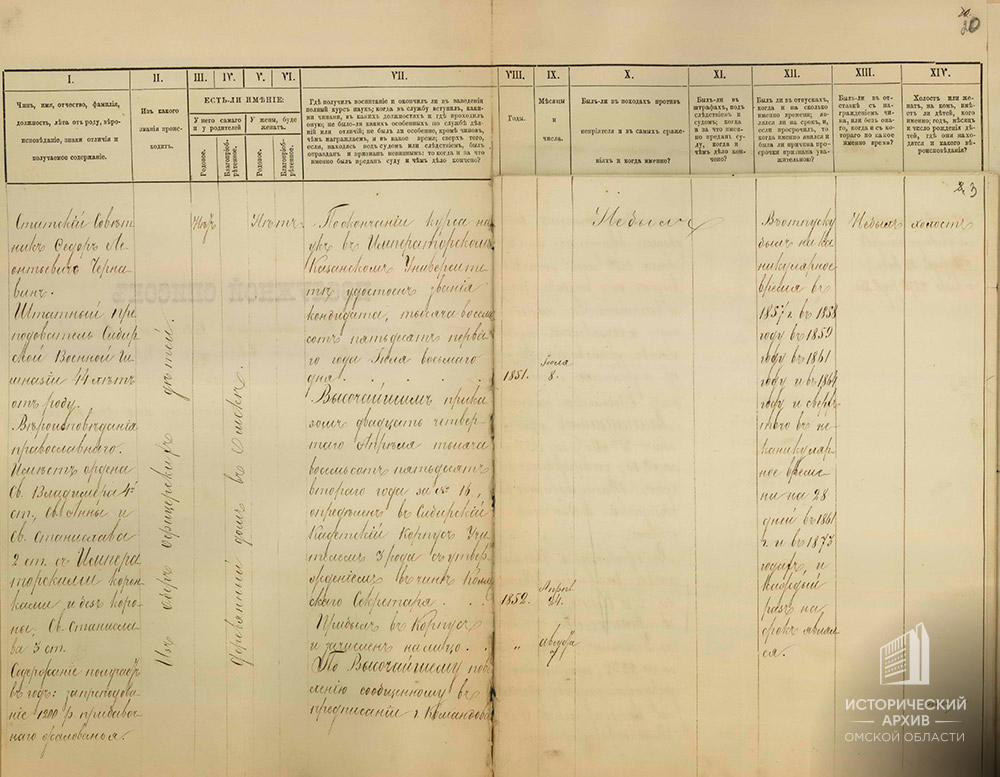 20.
20
I.
II.
III.
IV.
V.
VI.
VII.
VIII.
IX.
X.
XI.
XII.
XIII.
XIV.
Чинъ, имя, отчество, фамилія,
должность, лѣта отъ роду, вѣро-
исповѣданіе, знаки отличія и
получаемое содержаніе.
Изъ какого
званія проис-
ходитъ.
ЕСТЬ-ЛИ ИМѢНІЕ:
У него самаго
и у родителей
У жены, буде
женатъ.
Родовое.
Благопріо-
рѣтенное.
Родовое.
Благопріо-
рѣтенное.
Гдѣ получилъ воспитаніе и окончилъ ли въ заведеніи
полный курсъ наукъ; когда въ службу вступилъ, каки-
ми чинами, въ какихъ должностяхъ и гдѣ проходилъ
оную; не было-ли какихъ особенныхъ по службѣ дѣя-
ній или отличій; не былъ ли особенно, кромѣ чиновъ,
чѣмъ награждаемъ, и въ какое время; сверхъ того,
если, находясь подъ судомъ или слѣдствіемъ, былъ
оправданъ и признанъ невиннымъ: то когда и за что
именно былъ преданъ суду и чѣмъ дѣло кончено?
Годы.
Мѣсяцы
и
числа.
Былъ-ли въ походахъ противъ
непріятеля и въ самыхъ сраже-
ніяхъ и когда именно?
Былъ-ли въ
штрафахъ, подъ
слѣдствіемъ и
судомъ; когда
и за что имен-
но преданъ су-
ду, когда и
чѣмъ дѣло кон-
чено?
Былъ ли въ отпускахъ,
когда и на сколько
именно времени; яв-
лялся ли на срокъ, и,
если просрочилъ, то
когда именно явился и
была ли причина про-
срочки признана ува-
жительною?
Былъ-ли въ от-
ставкѣ съ на-
гражденіемъ чи-
на, или безъ она-
го, когда и съ ко-
тораго по какое
именно время?
Холостъ или же-
натъ, на комъ, имѣ-
етъ ли дѣтей, кого
именно; годъ, мѣсяцъ
и число рожденія дѣ-
тей, гдѣ они нахо-
дятся и какого вѣ-
роисповѣданія?
3
Статскій Совѣт
никъ Ѳедоръ Ле
онтьевичъ Черна
винъ.
Штатный пре
подователь Сибир
ской Военной Ги
мназіи 44 лѣтъ
отъ роду.
Вѣроисповѣданія
православнаго.
Имѣетъ ордена
Св. Владиміра 4й
ст., Св. Анны и
Св. Станислава
2 ст. съ Импера
торскими корон
ками и безъ коро-
ны, Св. Станисла
ва 3 ст.
Содержаніе получаетъ
въ годъ: за преподова
ніе 1200 р. прибавоч
наго жалованья.
Изъ оберъ офицерскихъ дѣтей.
Нѣтъ
Деревянный домъ въ Омскѣ.
Нѣтъ.
По окончаніи курса на
укъ въ Императорскомъ
Казанскомъ Университе
тѣ удостоенъ званія
кондидата, тысяча восем
сотъ пятьдесятъ перва
го года Іюля восьмаго
дня
1851.
Іюля
8.
Высочайшимъ прика
зомъ двадцать четвер
таго Апрѣля тысяча
восемьсотъ пятьдесятъ
втораго года за № 16,
опредѣленъ въ Сибирскій
Кадетскій Корпусъ Учи
телемъ 3 рода съ утвер
жденіемъ въ чинѣ Колле
скаго Секретаря
1852.
Апрѣл
24.
Прибылъ въ Корпусъ
и зачисленъ на лицо.
„
августа
7
По Высочайшему пове
лѣнію сообщенному въ
предписаніи г. Командова
Небылъ
Въ отпуску
былъ на ка
никулярное
время въ
1857 г. въ 1858
году въ 1859
году въ 1861
году и въ 1864
году и сверхъ
того въ не
каникуляр
ное време
ни на 28
дней въ 1861
г. и въ 1873
годахъ, и
каждый
разъ на
срокъ являл
ся.
Небылъ
холостъ
ИСТОРИЧЕСКИЙ
АРХИВ
ОМСКОЙ ОБЛАСТИ